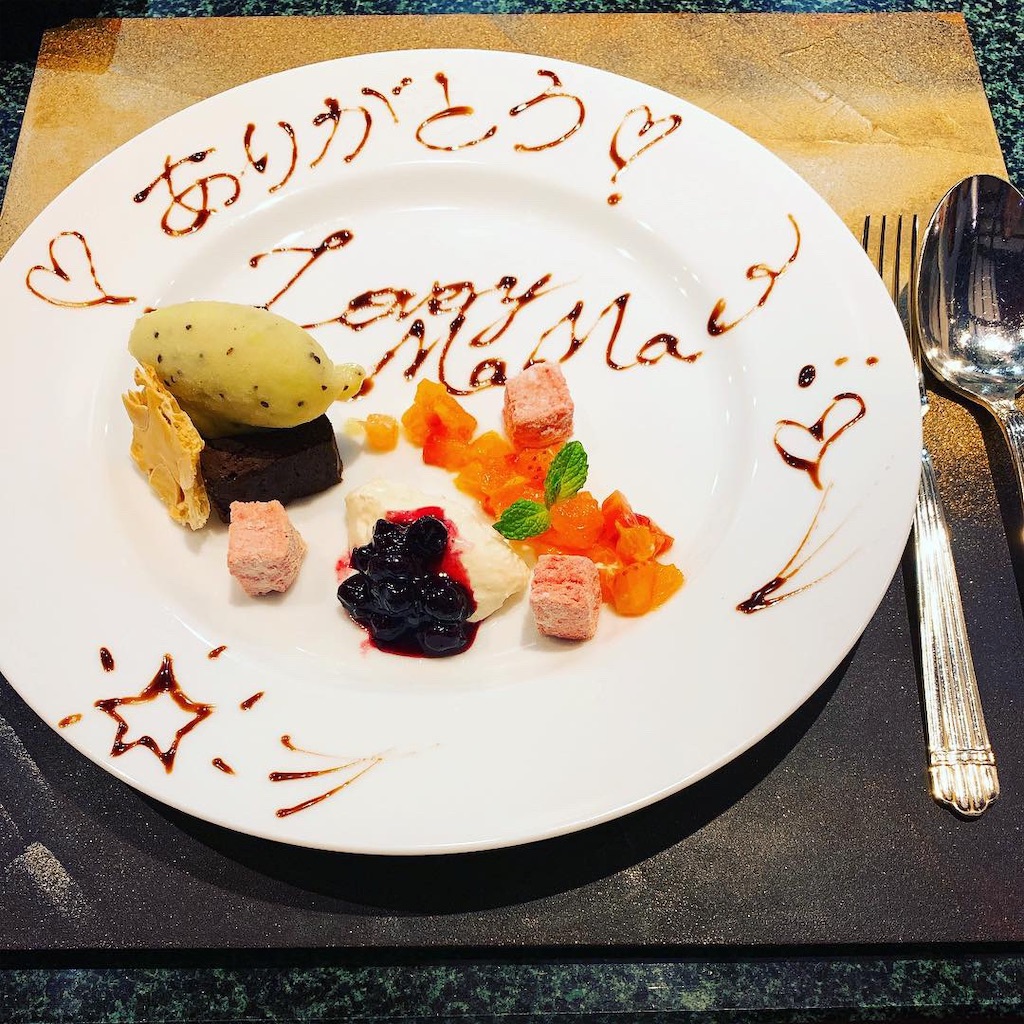 ありがとう
Lovey
MaMa